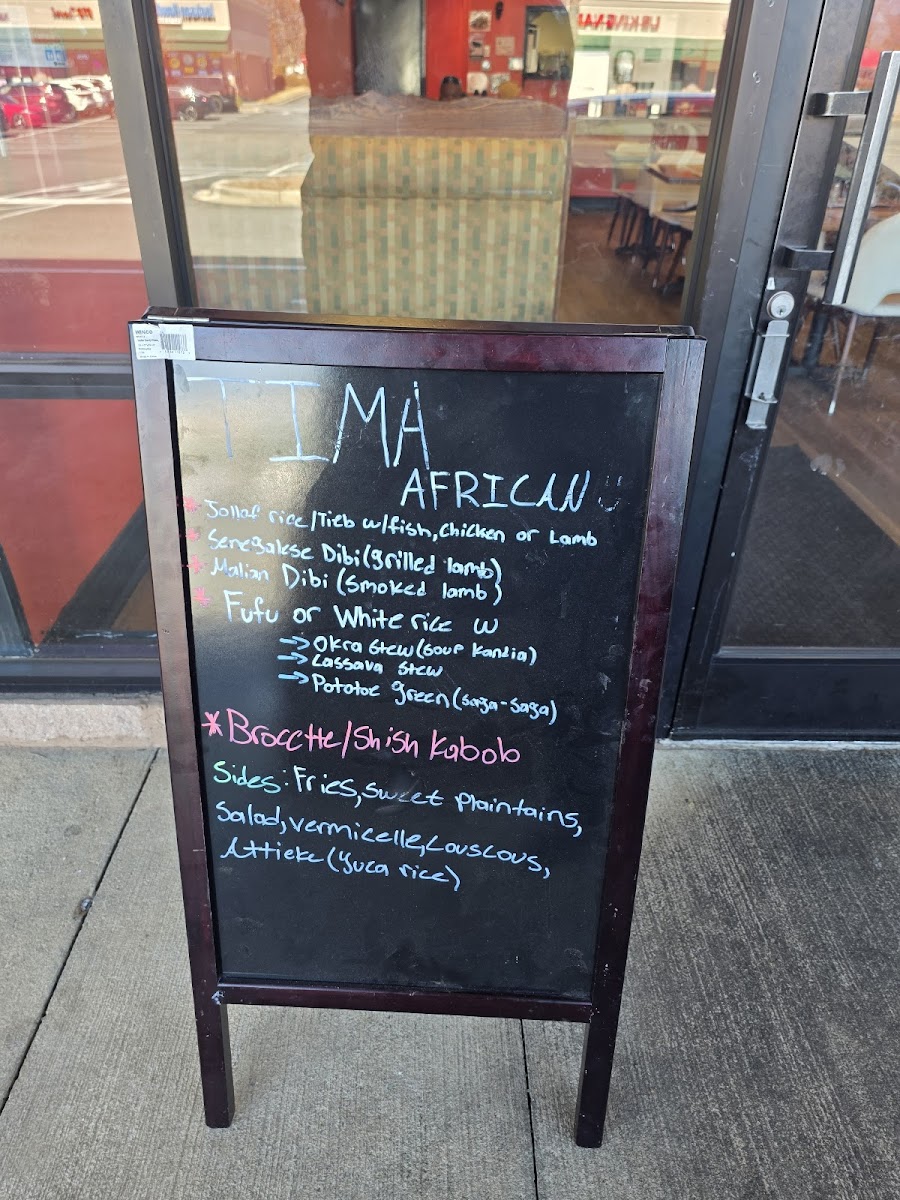 TIMA
AFRICAN
* Jollof rice/Tieb w/fish, Chicken or Lamb
* Senegalese Dibi (grilled lamb)
* Malian Dibi (Smoked lamb)
* Fufu or White rice w
→ Okra Stew (Soup Kandia)
→ Cassava Stew
→ Pototoe green (saga-saga)
* Brocctte/Shish Kabob
Sides: Fries, sweet plaintains,
Salad, vermicelle, Couscous,
Attieke (Yuca rice)